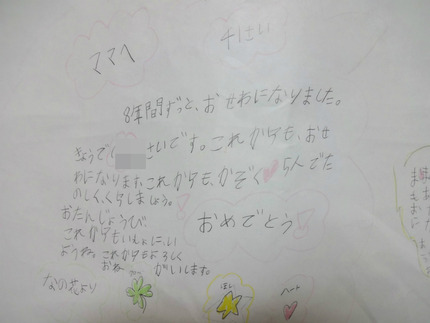 ママへ
41さい
8年間ずっと、おせわになりました。
きょうで
さいです。これからも、おせ
わになります、これからも、かぞく 5人でた
のしく、くらしましょう。
おたんじょうび
おめでとう!
これからもいっしょに、い
ようね。これからもよろしく
おね がいします。
なの花より
ほし
ハート